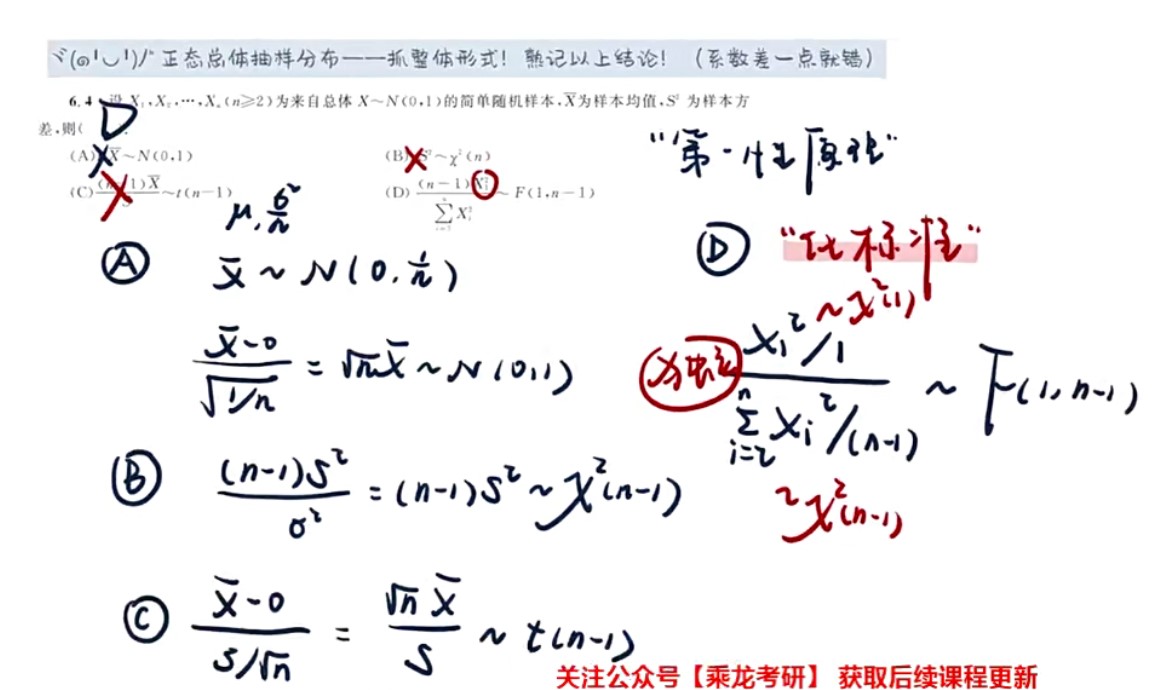 ヾ(๑╹◡╹)ﾉ" 正态总体抽样分布——抓整体形式！熟记以上结论！（系数差一点就错）
6.4 设 X₁,X₂,…,Xₙ(n≥2)为来自总体 X~N(0,1)的简单随机样本,X̄为样本均值,S² 为样本方
差,则(
D
(A) X̄~N(0,1)
(B) S²~χ²(n)
(C) 1)X̄ ~t(n-1)
(D) (n-1)X₁² / ∑X_i² ~ F(1,n-1)
"第一性原理"
μ, σ²/n
Ⓐ X̄ ~ N(0, 1/n)
(X̄-0)/√(1/n) = √n X̄ ~ N(0,1)
Ⓑ (n-1)S²/σ² = (n-1)S² ~ χ²(n-1)
Ⓒ (X̄-0)/(S/√n) = √n X̄/S ~ t(n-1)
Ⓓ "化标准"
~χ²(1)
X₁²/1
独立
∑_{i=2}^{n} X_i²/(n-1) ~ F(1, n-1)
~χ²(n-1)
关注公众号【乘龙考研】 获取后续课程更新